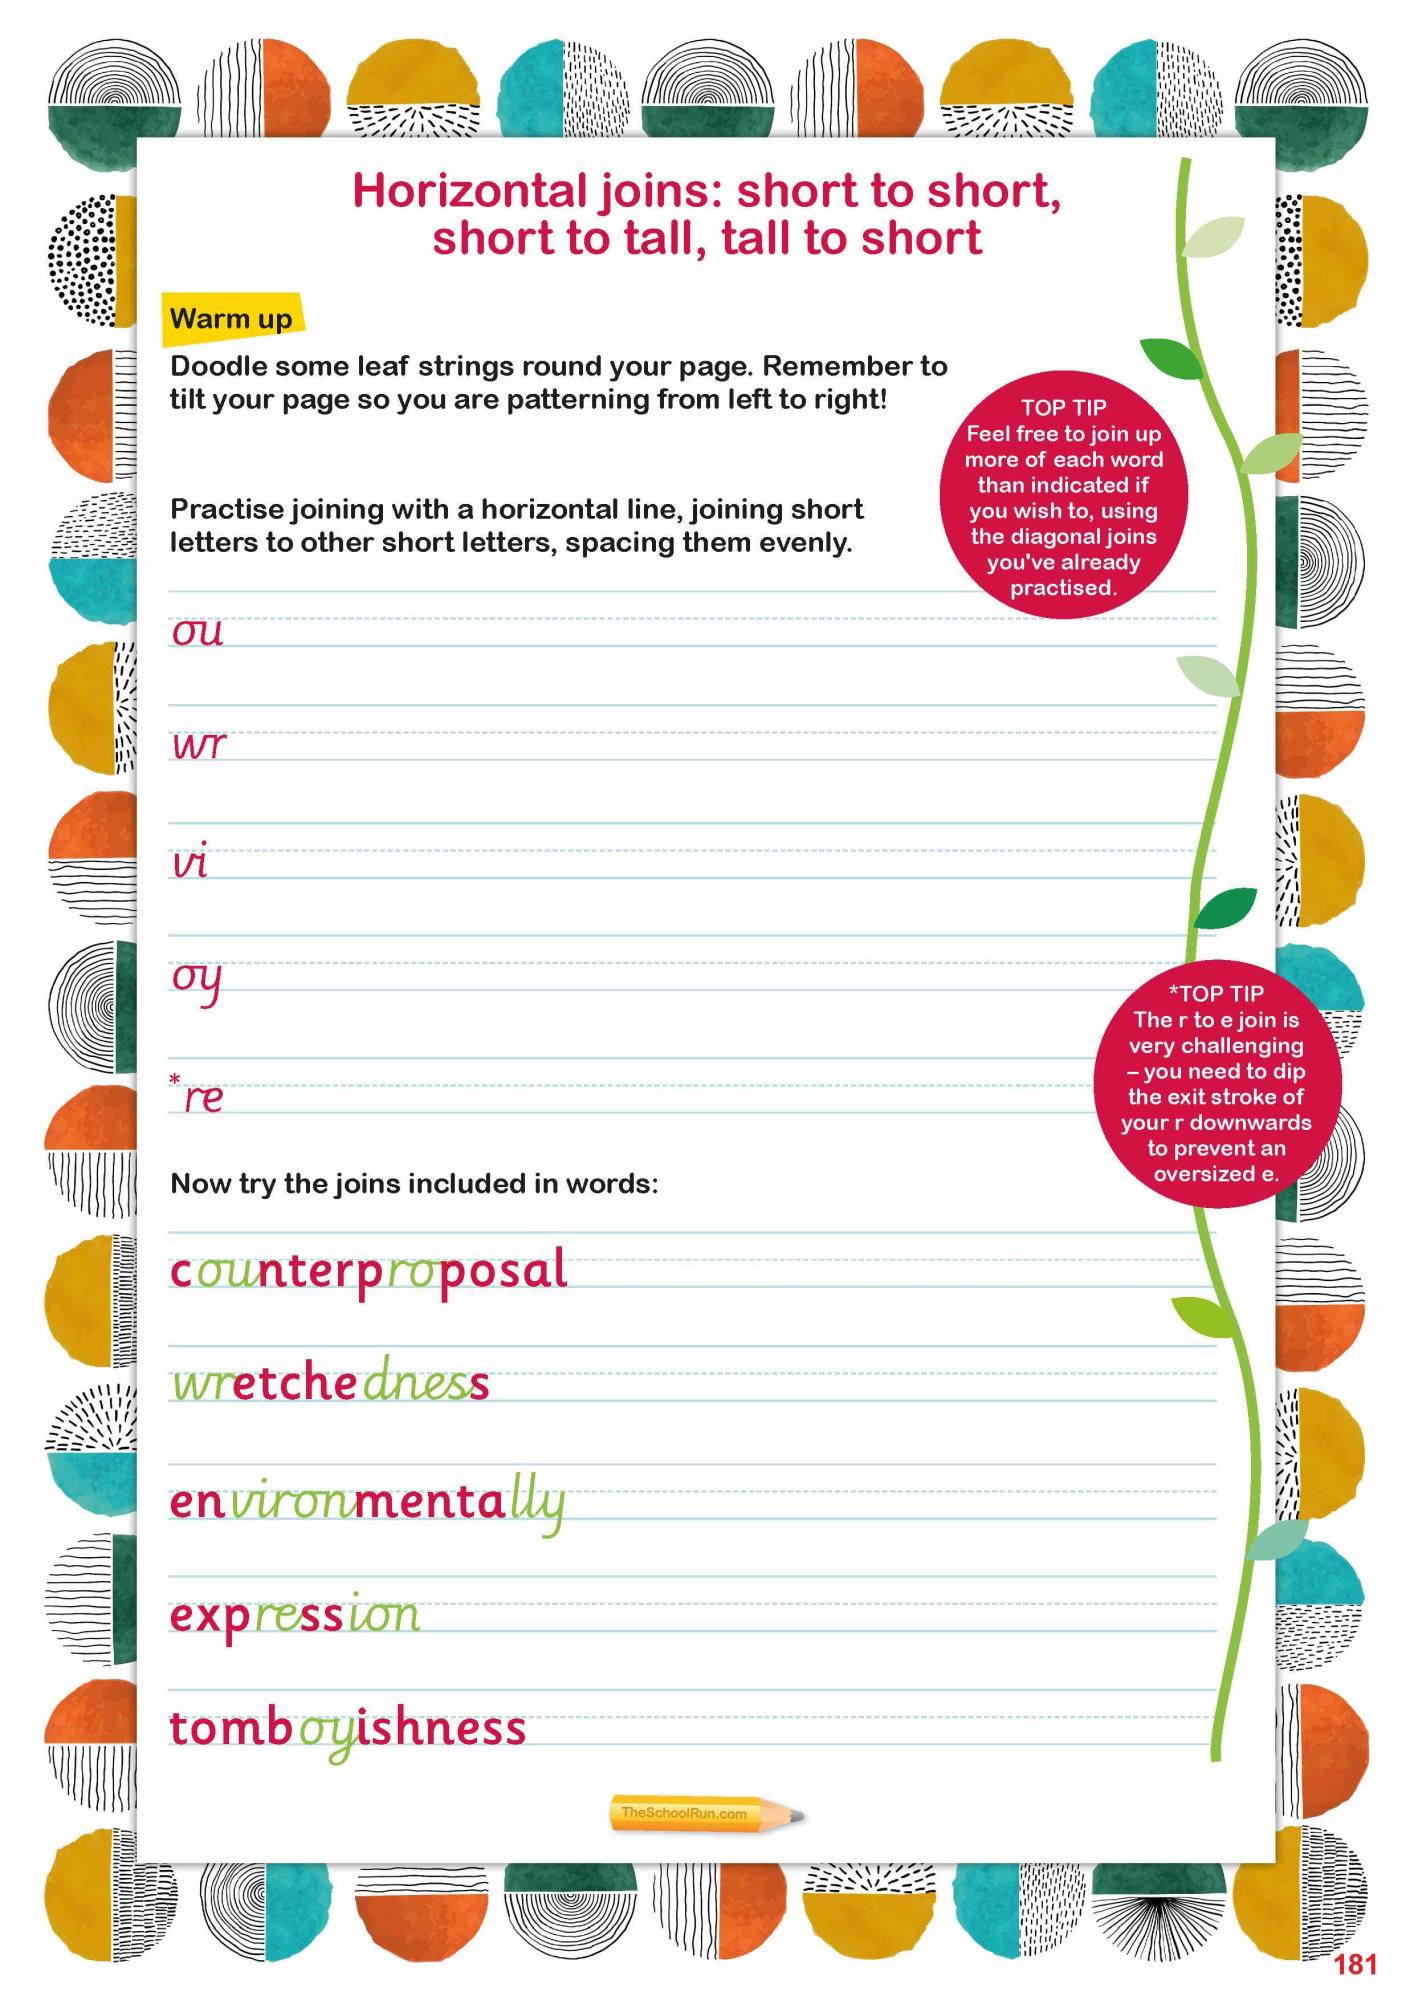 Horizontal joins: short to short,
short to tall, tall to short
Warm up
Doodle some leaf strings round your page. Remember to
tilt your page so you are patterning from left to right!
TOP TIP
Feel free to join up
more of each word
than indicated if
you wish to, using
the diagonal joins
you've already
practised.
Practise joining with a horizontal line, joining short
letters to other short letters, spacing them evenly.
ou
wr
vi
oy
*re
*TOP TIP
The r to e join is
very challenging
– you need to dip
the exit stroke of
your r downwards
to prevent an
oversized e.
Now try the joins included in words:
counterproposal
wretchedness
environmentally
expression
tomboyishness
TheSchoolRun.com
181